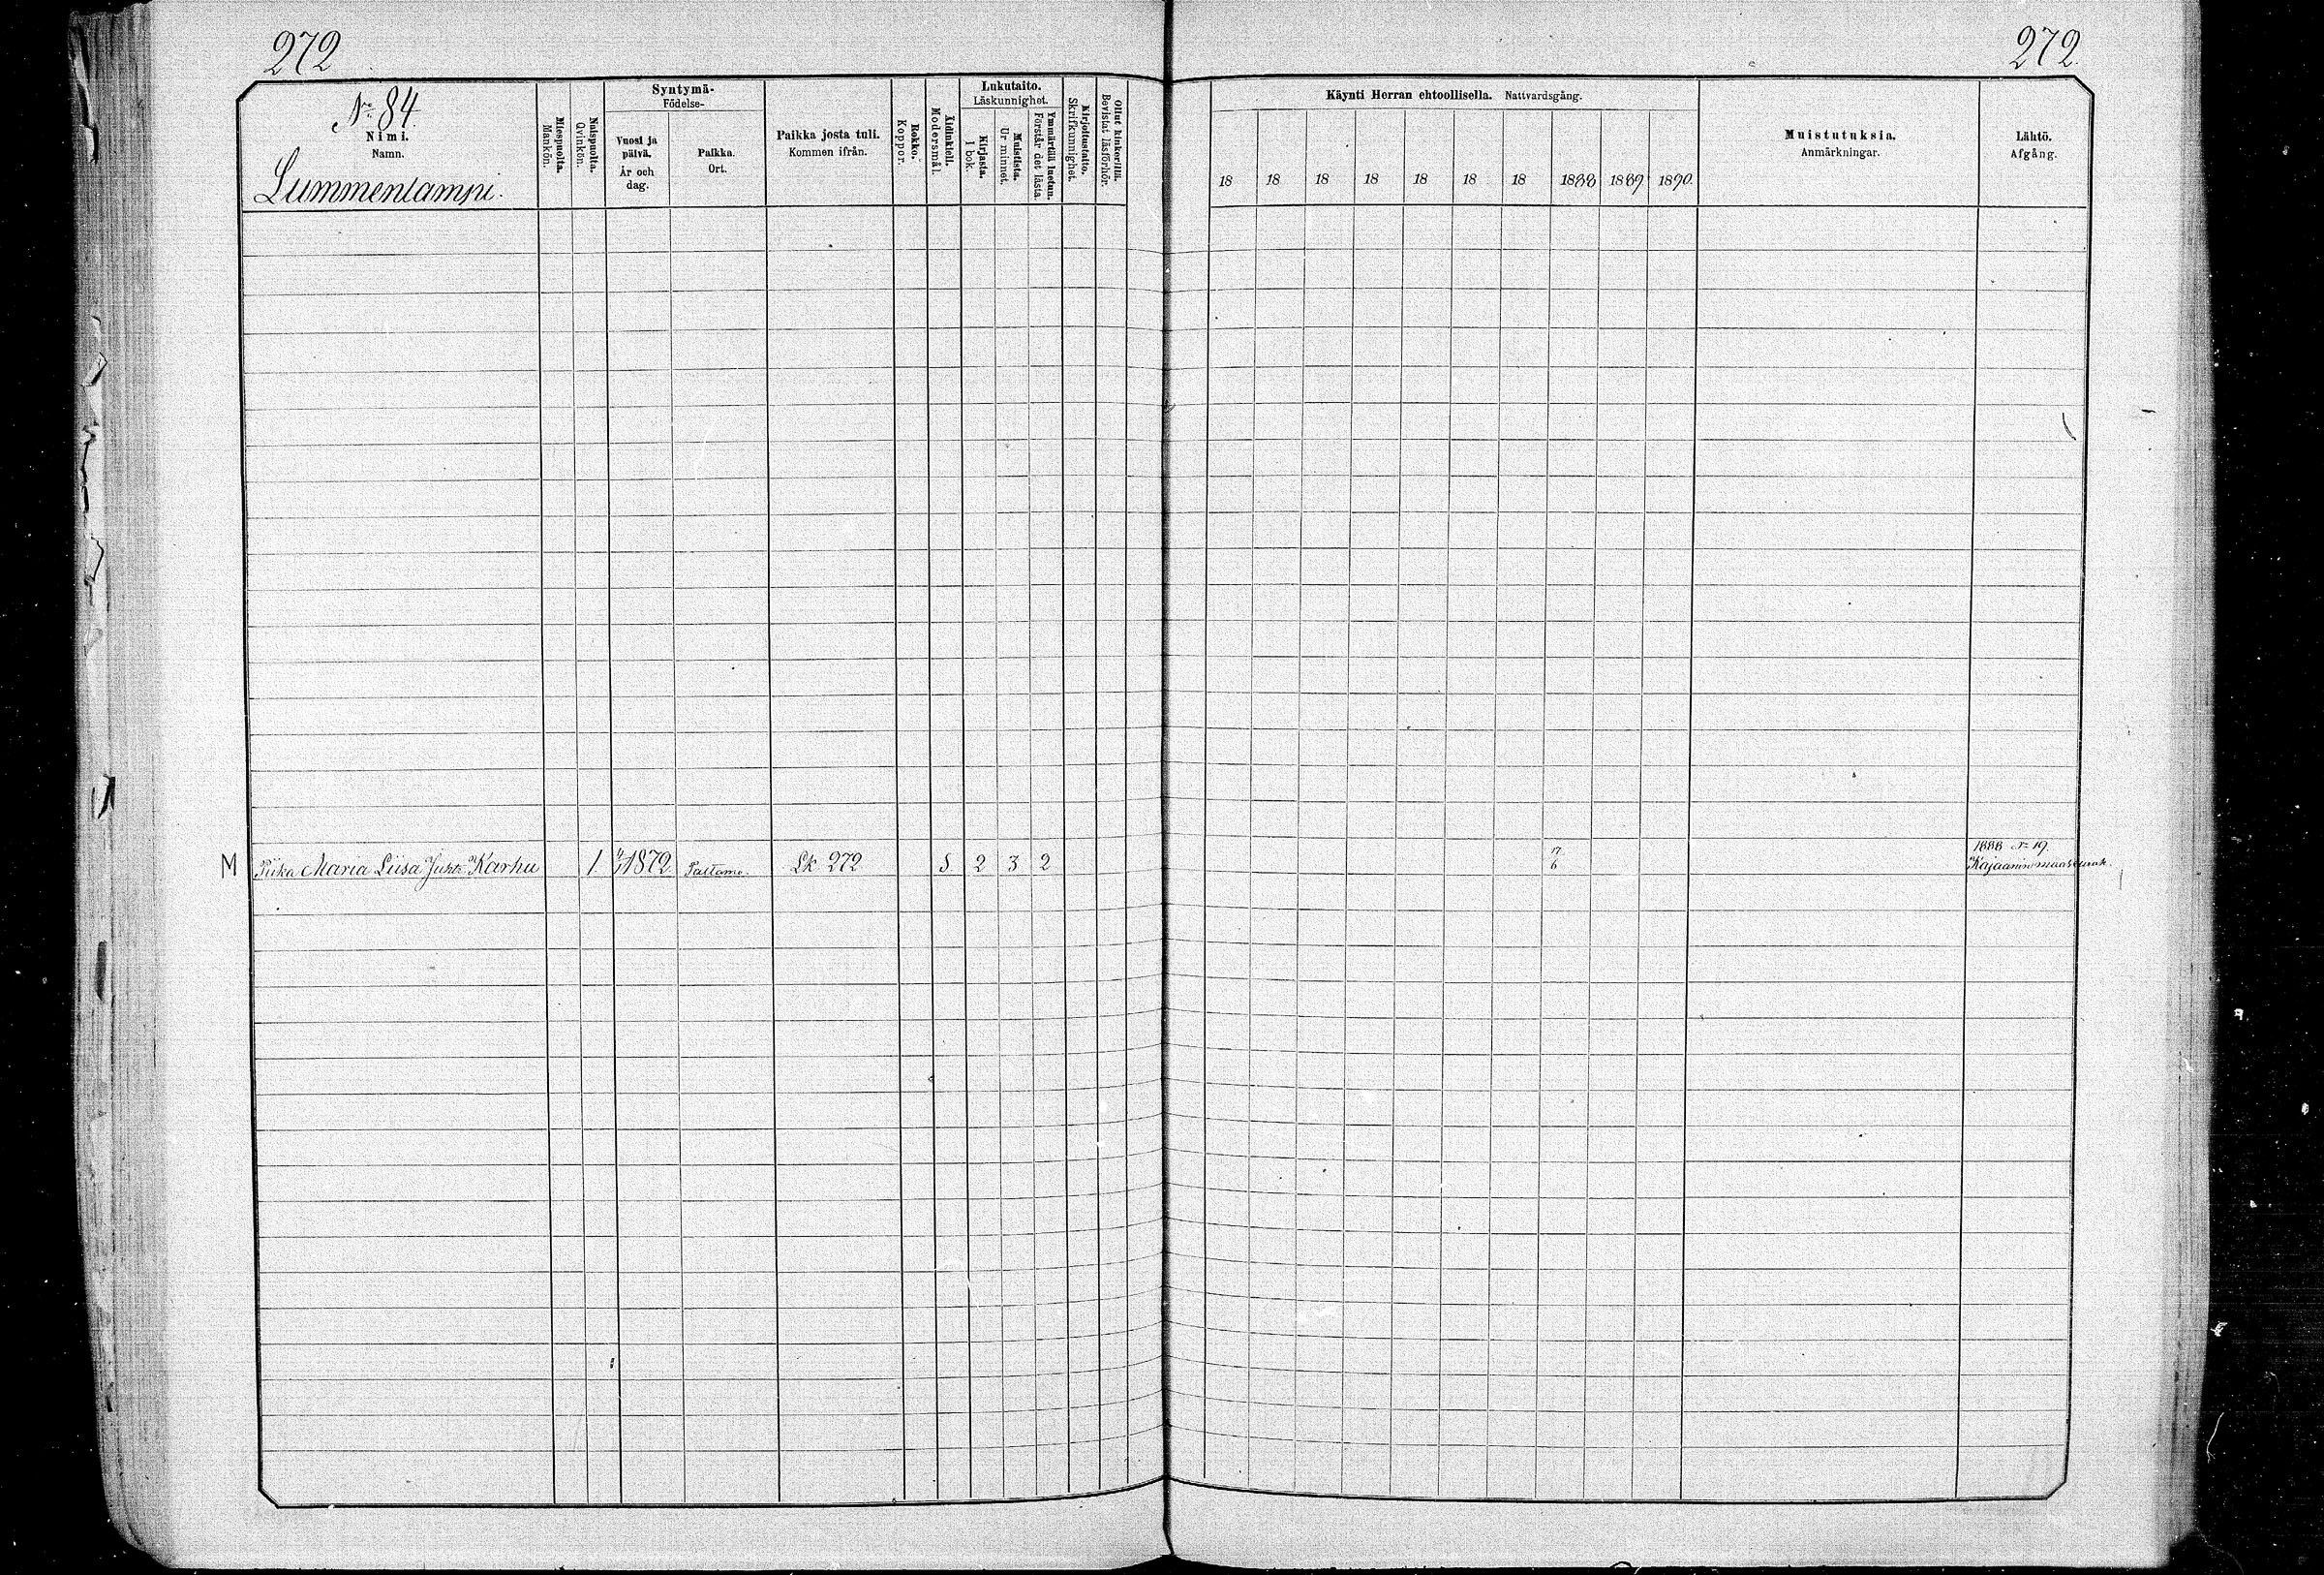 272
272.
No 84.
Nimi.
Namn.
Lummenlampi.
Miespuolta.
Mankön.
Naispuolta.
Qvinkön.
Syntymä-
Födelse-
Vuosi ja
päivä.
År och
dag.
Paikka.
Ort.
Paikka josta tuli.
Kommen ifrån.
Rokko.
Koppor.
Äidinkieli.
Modersmål.
Lukutaito.
Läskunnighet.
Kirjasta.
I bok.
Muistista.
Ur minnet.
Ymmärtää luetun.
Förstår det lästa.
Kirjoitustaito.
Skrifkunnighet.
Ollut kinkerillä.
Bevistat läsförhör.
Käynti Herran ehtoollisella. Nattvardsgång.
18 18 18 18 18 18 18 1888 1889 1890.
Muistutuksia.
Anmärkningar.
Lähtö.
Afgång.
M Piika Maria Liisa Juht. Karhu 1. 1872. Paltamo. Lk 272 S. 2 3 2 17/6
1888 No 19.
Kajaanin maaseurak.